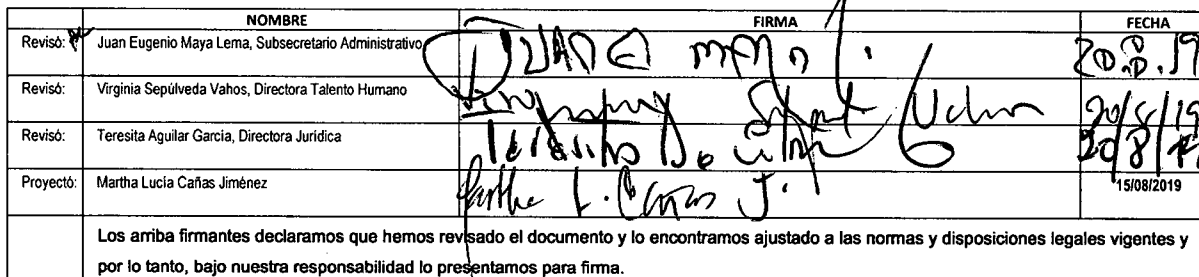 NOMBRE FIRMA FECHA
Revisó: Juan Eugenio Maya Lema, Subsecretario Administrativo 20.8.19
Revisó: Virginia Sepúlveda Vahos, Directora Talento Humano 20/8/19
Revisó: Teresita Aguilar García, Directora Jurídica 20/8/19
Proyectó: Martha Lucía Cañas Jiménez Martha L. Cañas J. 15/08/2019
Los arriba firmantes declaramos que hemos revisado el documento y lo encontramos ajustado a las normas y disposiciones legales vigentes y
por lo tanto, bajo nuestra responsabilidad lo presentamos para firma.